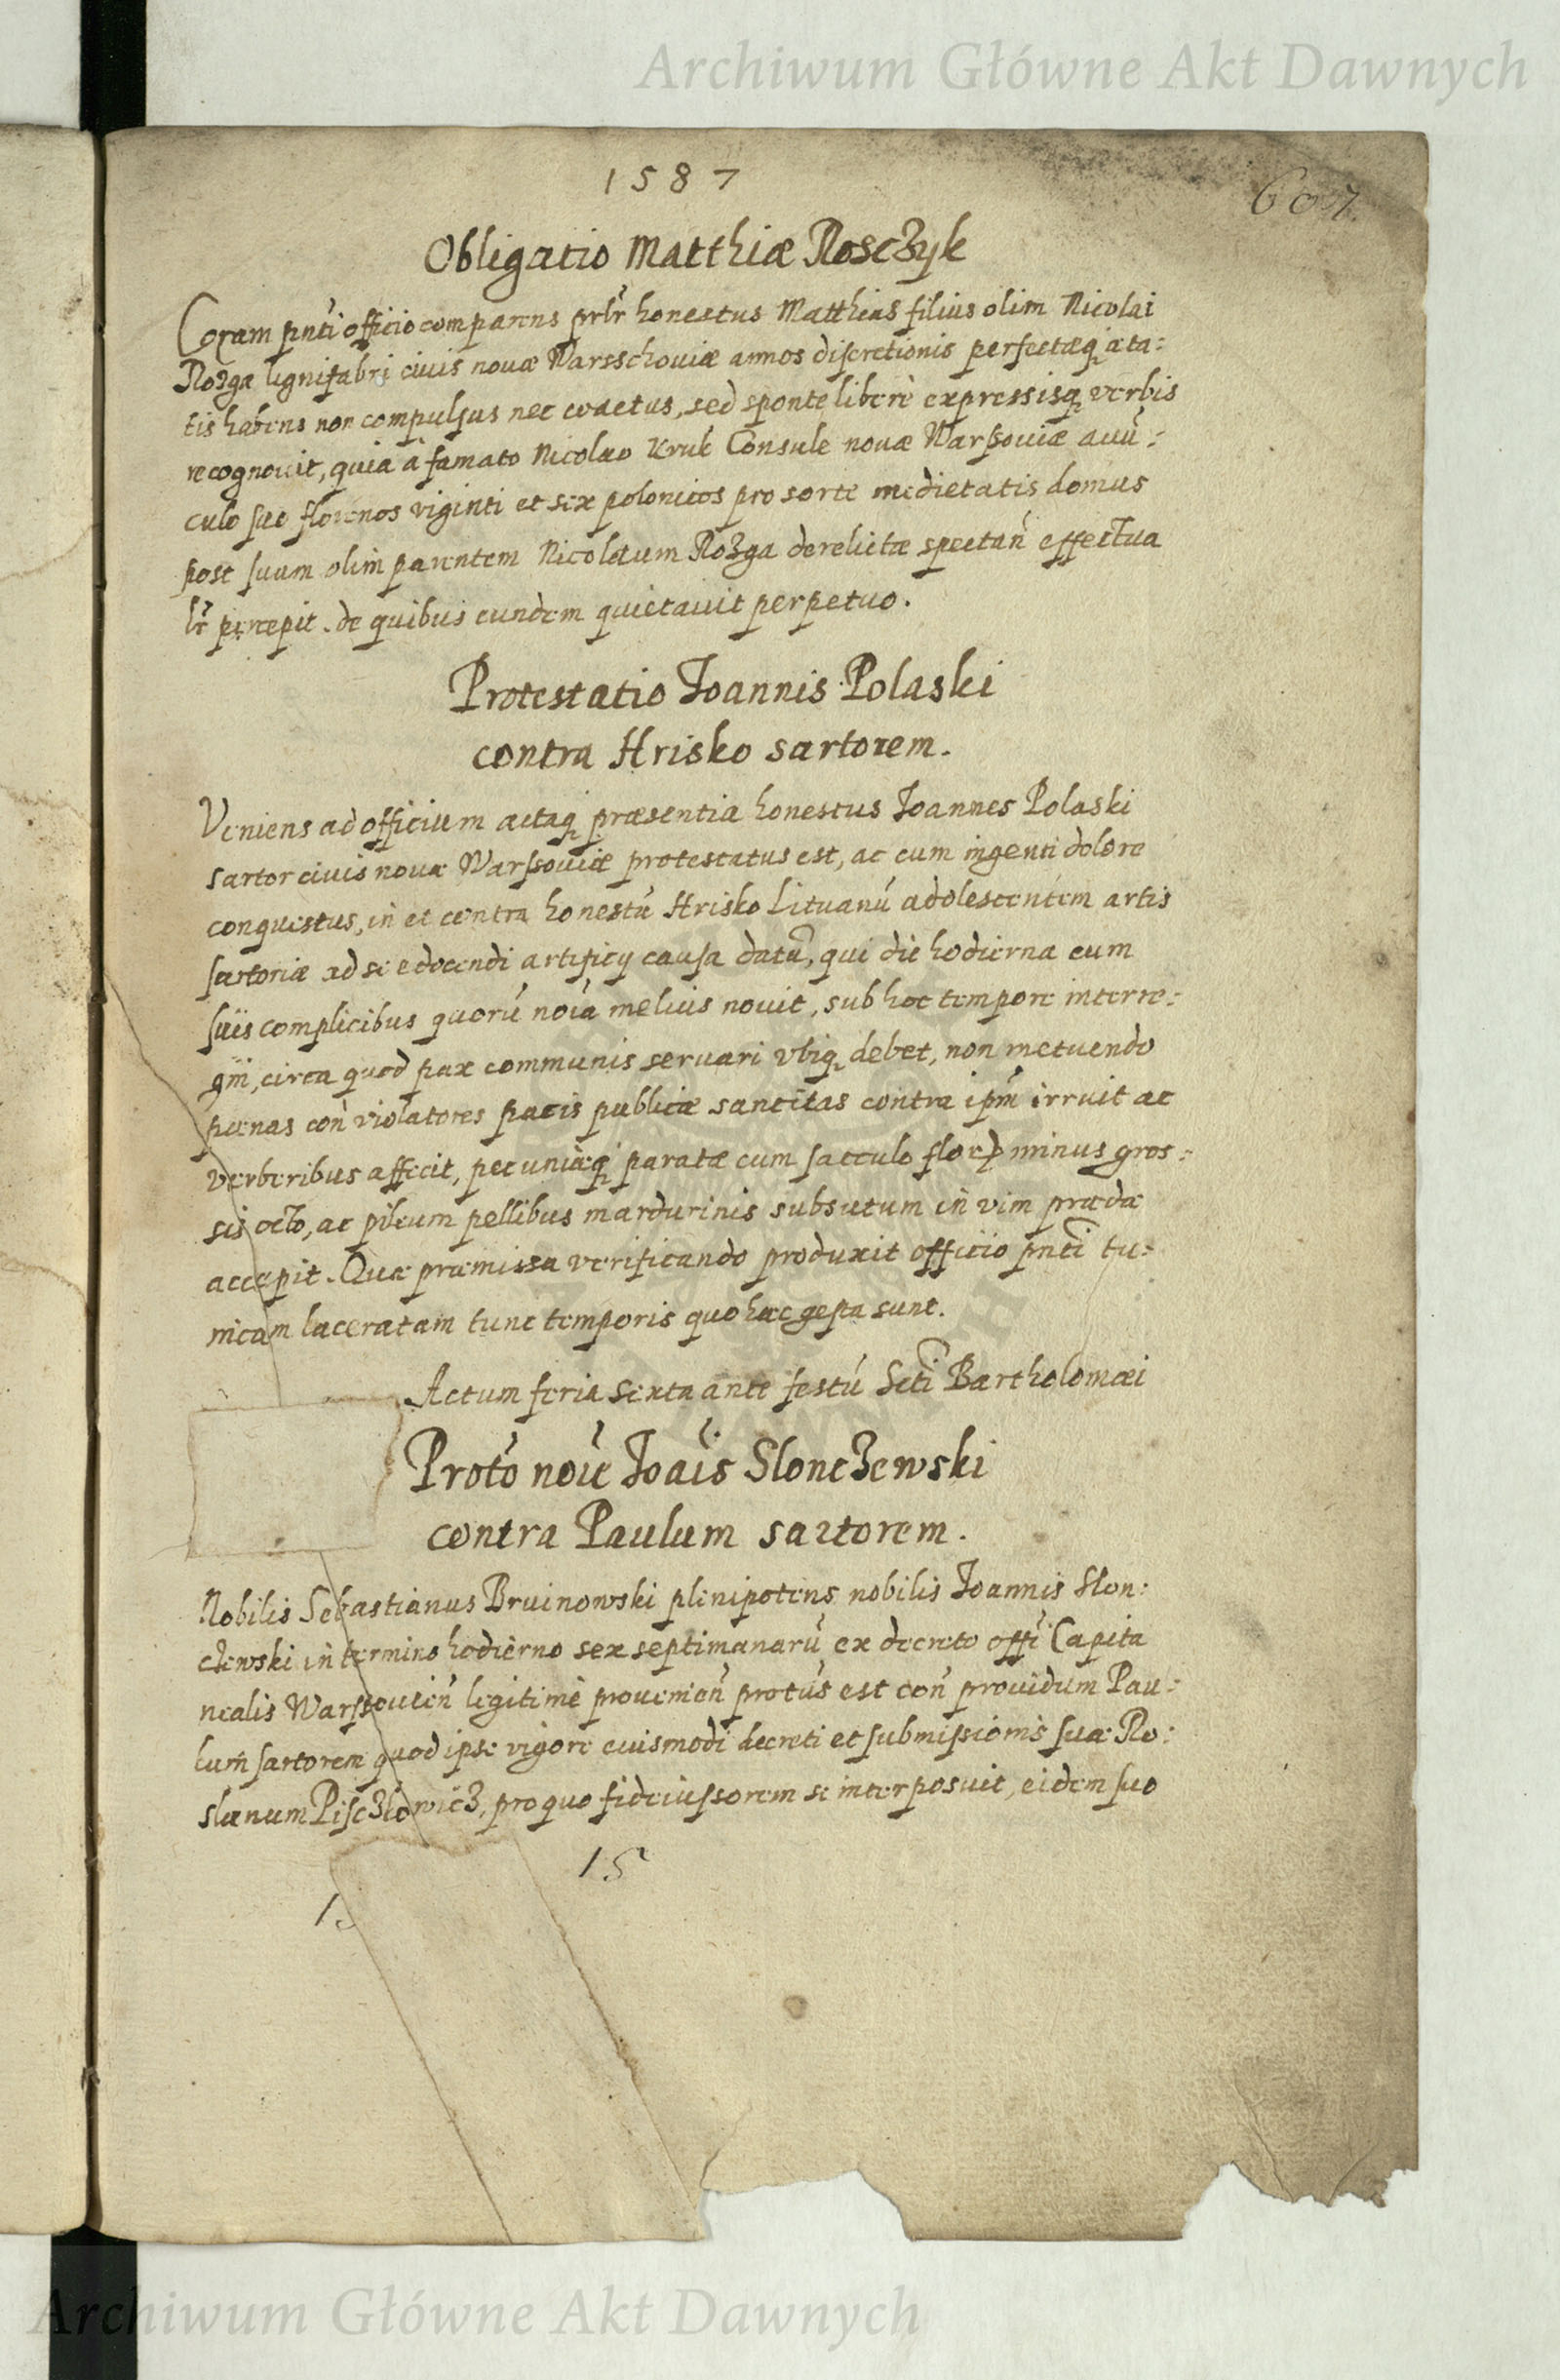 Archiwum Główne Akt Dawnych
1587
607.
Obligatio Matthiæ Rosczyk
Coram pnti officio comparens prlr honestus Matthias filius olim Nicolai
Rozga lignifabri civis nouæ Warsschouiæ annos discretionis perfectæq æta:
tis habens non compulsus nec coactus, sed sponte liberè expressisq verbis
recognouit, quia à famato Nicolao Kruk Consule nouæ Warssouiæ auũ:
culo suo florenos viginti et sex polonicos pro sorte medietatis domus
post suum olim parentem Nicolaum Rozga derelictæ spectañ effectua
lr percepit. de quibus eundem quietauit perpetuo.
Protestatio Joannis Polaski
contra Hrisko sartorem.
Veniens ad officium actaq præsentia honestus Joannes Polaski
sartor ciuis nouæ Warssouiæ protestatus est, ac cum ingenti dolore
conquestus, in et contra honestũ Hrisko Lituanũ adolescentem artis
sartoriæ ad se edocendi artificij causa datũ, qui die hodierna cum
suis complicibus quorũ noĩa melius nouit, sub hoc tempore interre:
gni, circa quod pax communis seruari vbiq debet, non metuendo
pœnas coñ violatores pacis publicæ sancitas contra ipm irruit ac
verberibus affecit, pecuniæq paratæ cum sacculo minus gros:
sis octo, ac pileum pellibus mardurinis subsutum in vim prædæ
accepit. Quæ præmissa verificando produxit officio pnti tu:
nicam laceratam tunc temporis quo hæc gesta sunt.
Actum feria sexta ante festũ Scti Bartholomæi
Proto noie Joais Slonczewski
contra Paulum sartorem.
Nobilis Sebastianus Bruinowski plenipotens nobilis Joannis Slon:
czewski in termino hodierno sex septimanarũ ex decreto offi Capita
nealis Warssouień legitimè prouenień protus est coñ prouidum Pau:
lum sartorem quod ipse vigore euismodi decreti et submissionis suæ Ro:
slanum Pisczlowicz, pro quo fideiussorem se interposuit, eidem suo
15
1.
Archiwum Główne Akt Dawnych